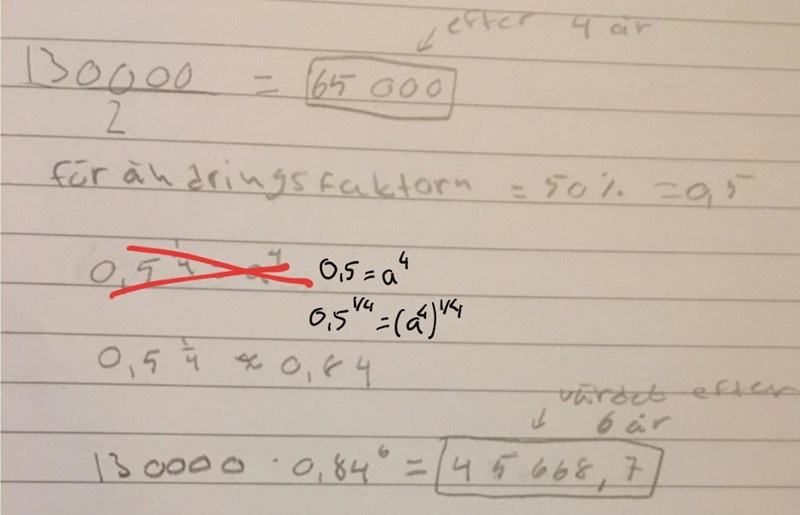 efter 4 år
130000/2 = 65 000
förändringsfaktorn = 50% = 0,5
0,5^1/4 = a^4
0,5 = a^4
0,5^1/4 = (a^4)^1/4
0,5^1/4 ≈ 0,84
värdet efter
6 år
130000 · 0,84^6 = 45 668,7